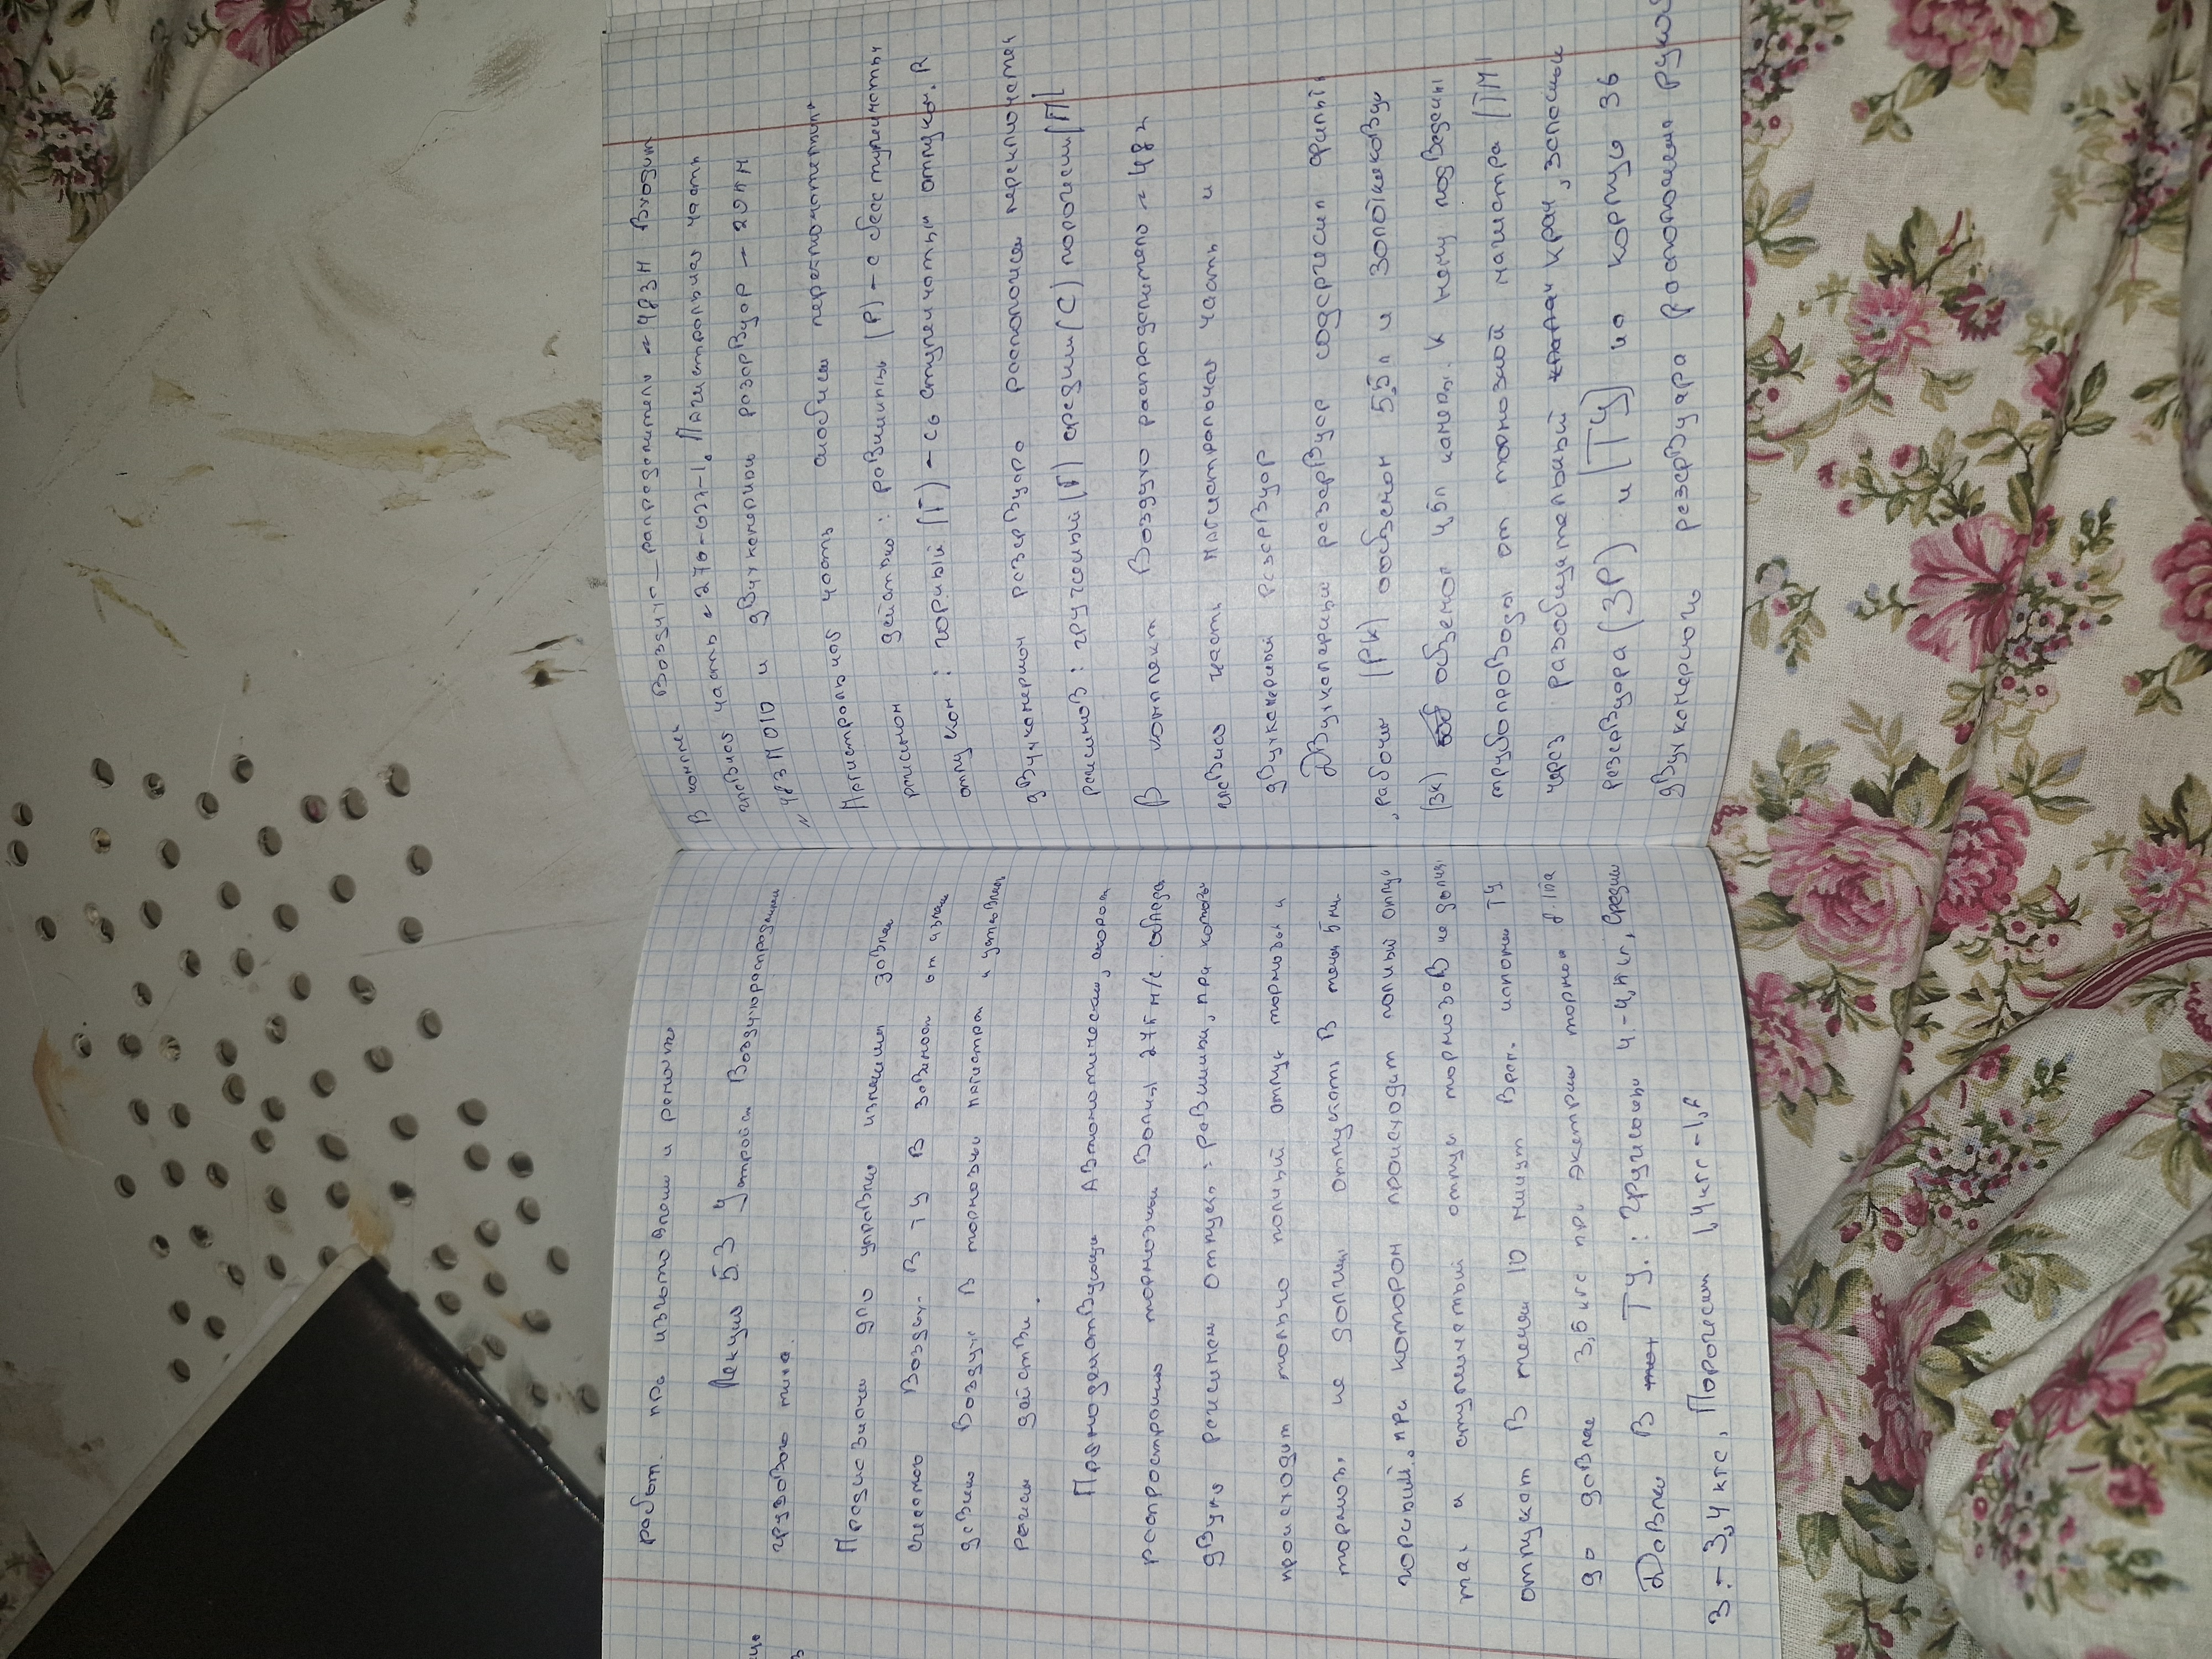 работ. при изготовлени и ремонте
Лекция 5.3 Устройств Воздухораспределителя
грузового типа.
Предназначен для управлен изменен давлен
сжатого Воздух. В ТУ В зависимои от изменен
давлени Воздух В тормозной магистрали и установлен
режим действи.
Прямодействующи Автоматически, скорост
распространи тормозной Волны 275 м/с. облада
двумя режимам отпуска: равнинны, при которы
происходит только полный отпуск тормозы и
тормоз, не должны отпускать в течен 5 ми.
горный, при котором происходит полный отпу
так и ступенчатый отпуск тормозов не должны
отпускат В течен 10 минут Врем. наполнен ТУ
до давлен 3,5 кгс при экстрен тормож
Давлен В ТУ.: Груженом 4.-4, кгс, Средни
3.-3,4 кгс, Порожнем 1,4 кгс -1,8
В комплек Воздухо_рапределител № 483М Входит
главная часть № 270-023-1. Магистральная часть
№ 483М 010 и двухкамерный резервуар - 295М
Магистральная часть снабжен переключателем
режимом действю: равнинны (Р) - с бесступенчаты
отпуском: горный (Г) - со ступенчатым отпуском. R
двухкамерном резервуаре расположен переключател
режимов: груженый (Г) средни (С) порожни (П)
В комплект Воздухо распределителя № 483
главная часть магистральная часть и
двухкамерный резервуар
Двухкамерный резервуар содержит фильт
рабочи (РК) объемом 5,5 л и золотниковую
(ЗК) объемом 4,5 л камеры. К нему подведены
трубопроводы от тормозной магистра (ТМ)
через разобщительный кран, запасны
резервуара (ЗР) и (ТЦ) на корпусе 36
двухкамерного резервуара расположен рукоя